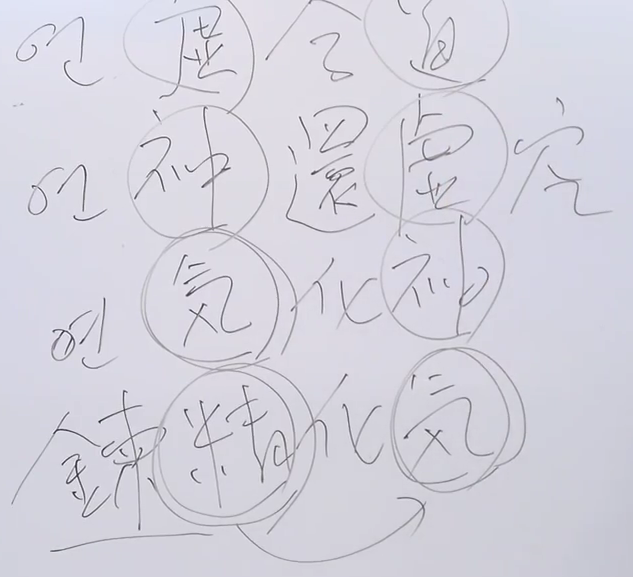 연虛合道
연神還虛空
연気化神
鍊精化気